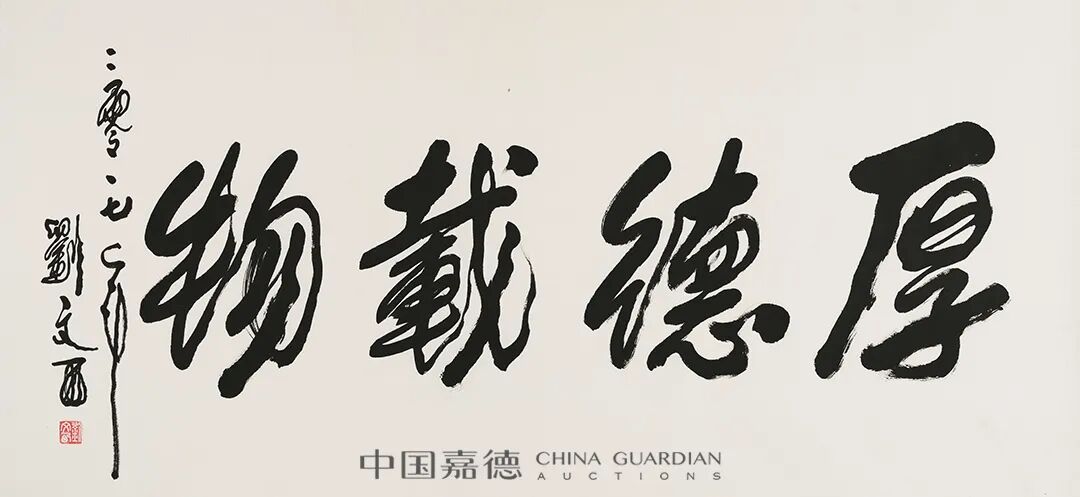 厚德載物
二零一七年
劉文西
中国嘉德 CHINA GUARDIAN
AUCTIONS